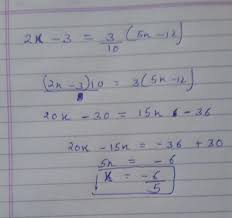 2x - 3 = 3/10 (5x - 12)
(2x - 3)10 = 3(5x - 12)
20x - 30 = 15x - 36
20x - 15x = -36 + 30
5x = -6
x = -6/5